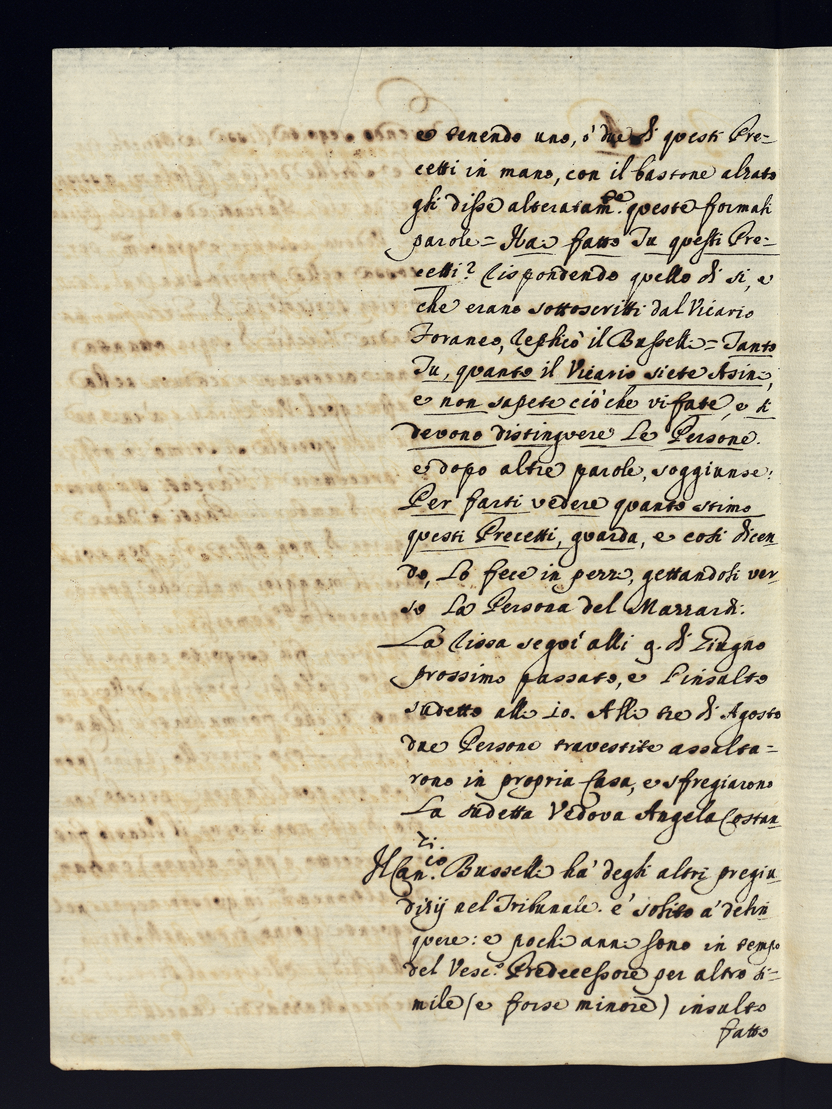 e tenendo uno, ò due di questi Pre=
cetti in mano, con il bastone alzato
gli disse alteratam.te queste formali
parole = Hai fatto Tu questi Pre=
cetti? rispondendo quello di si, e
che erano sottoscritti dal Vicario
Foraneo, replicò il Busselli = Tanto
Tu, quanto il Vicario siete Asini,
e non sapete ciò che vi fate, e si
devono distinguere Le Persone.
e dopo altre parole, soggiunse:
Per farti vedere quanto stimo
questi Precetti, guarda, e così dicen
do, Lo fece in pezzi, gettandoli ver
so La Persona del Mazzardi.
La rissa seguì alli 9. di Giugno
prossimo passato, e l'insalto
sudetto alli 10. Alli tre di Agosto
due Persone travestite assalta=
rono in propria Casa, e sfregiarono
La sudetta Vedova Angela Costan
zi.
Il Can.co Busselli hà degli altri pregiu
dizij nel Tribunale. è solito à delin
quere: e pochi anni sono in tempo
del Vesc.o Predecessore per altro si=
mile (e forse minore) insalto
fatto